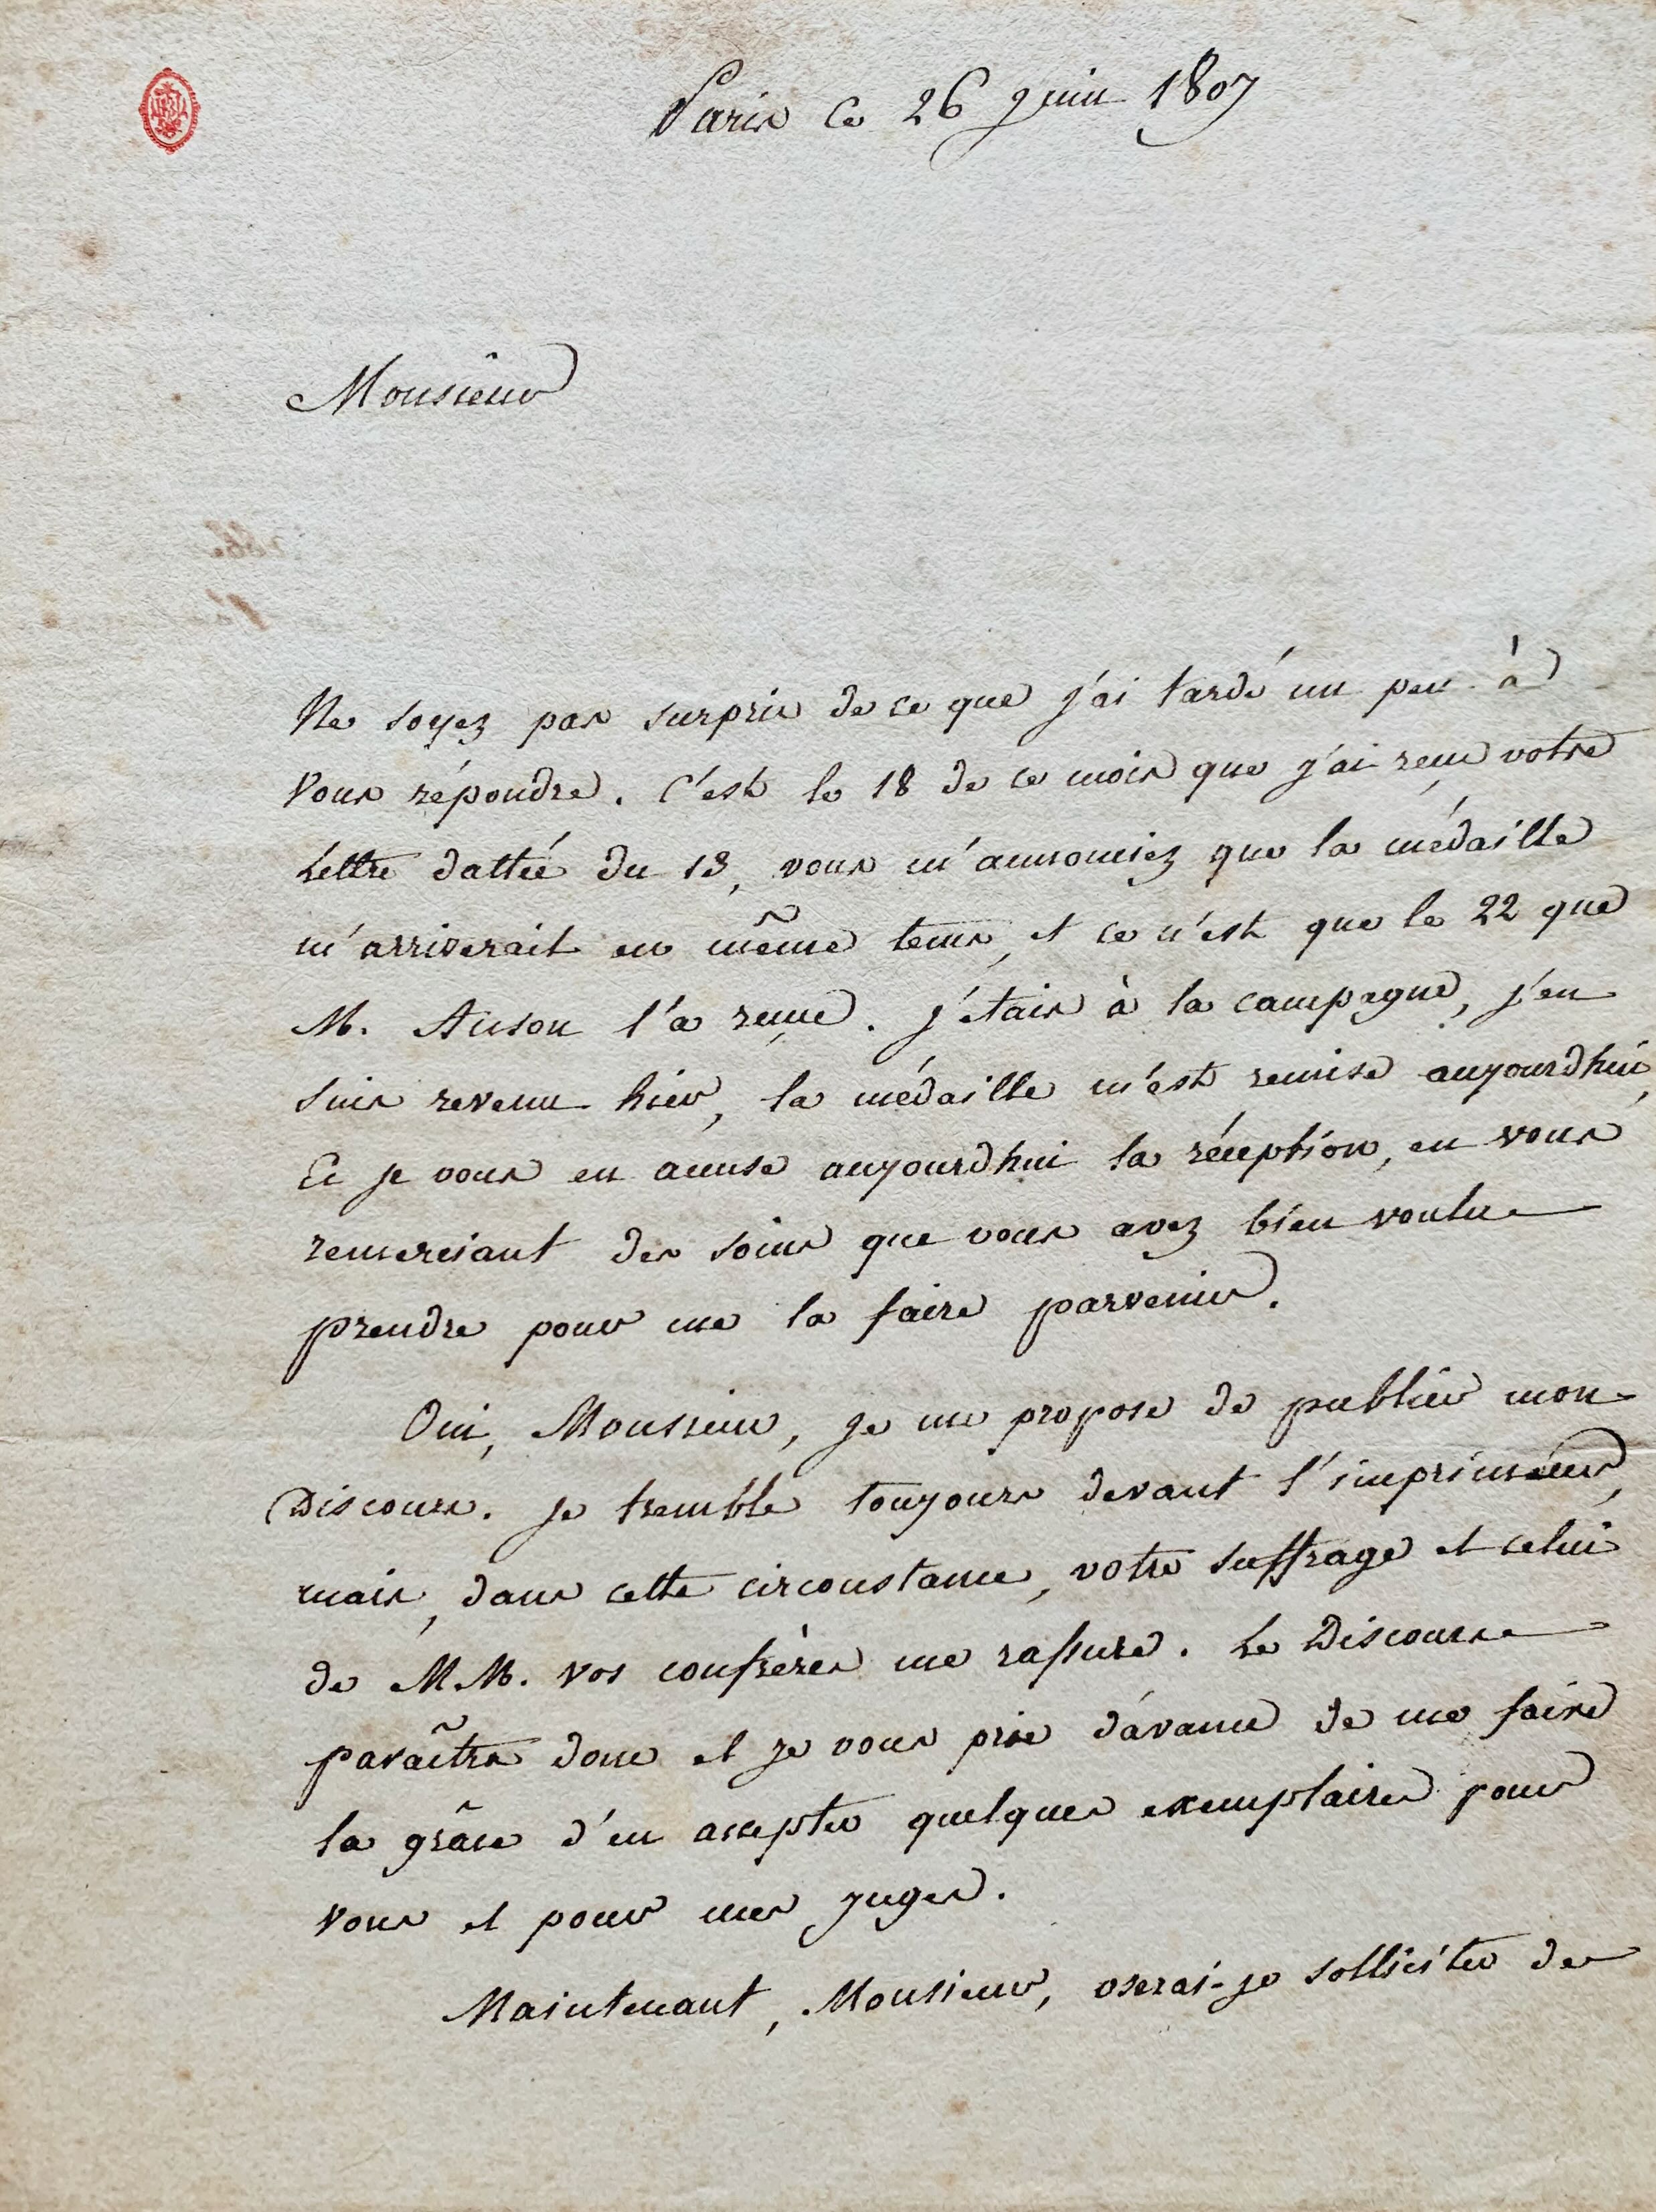 Paris ce 26 juin 1807
Monsieur
Ne soyez pas surpris de ce que j'ai tardé un peu à
Vous répondre. C'est le 18 de ce mois que j'ai reçu votre
Lettre dattée du 13, vous m'annonciez que la médaille
m'arriverait en même tems, et ce n'est que le 22 que
M. Anson l'a reçue. j'étais à la campagne, j'en
suis revenu hier, la médaille m'est remise aujourdhui,
Et je vous en accuse aujourdhui la réception, en vous
remerciant des soins que vous avez bien voulu
prendre pour me la faire parvenir.
Oui, Monsieur, je me propose de publier mon
Discours. je tremble toujours devant l'imprimeur,
mais, dans cette circonstance, votre suffrage et celui
de MM. vos confrères me rassure. Le Discours
paraîtra donc et je vous prie d'avance de me faire
la grâce d'en accepter quelques exemplaires pour
vous et pour mes juges.
Maintenant, Monsieur, oserai-je solliciter de